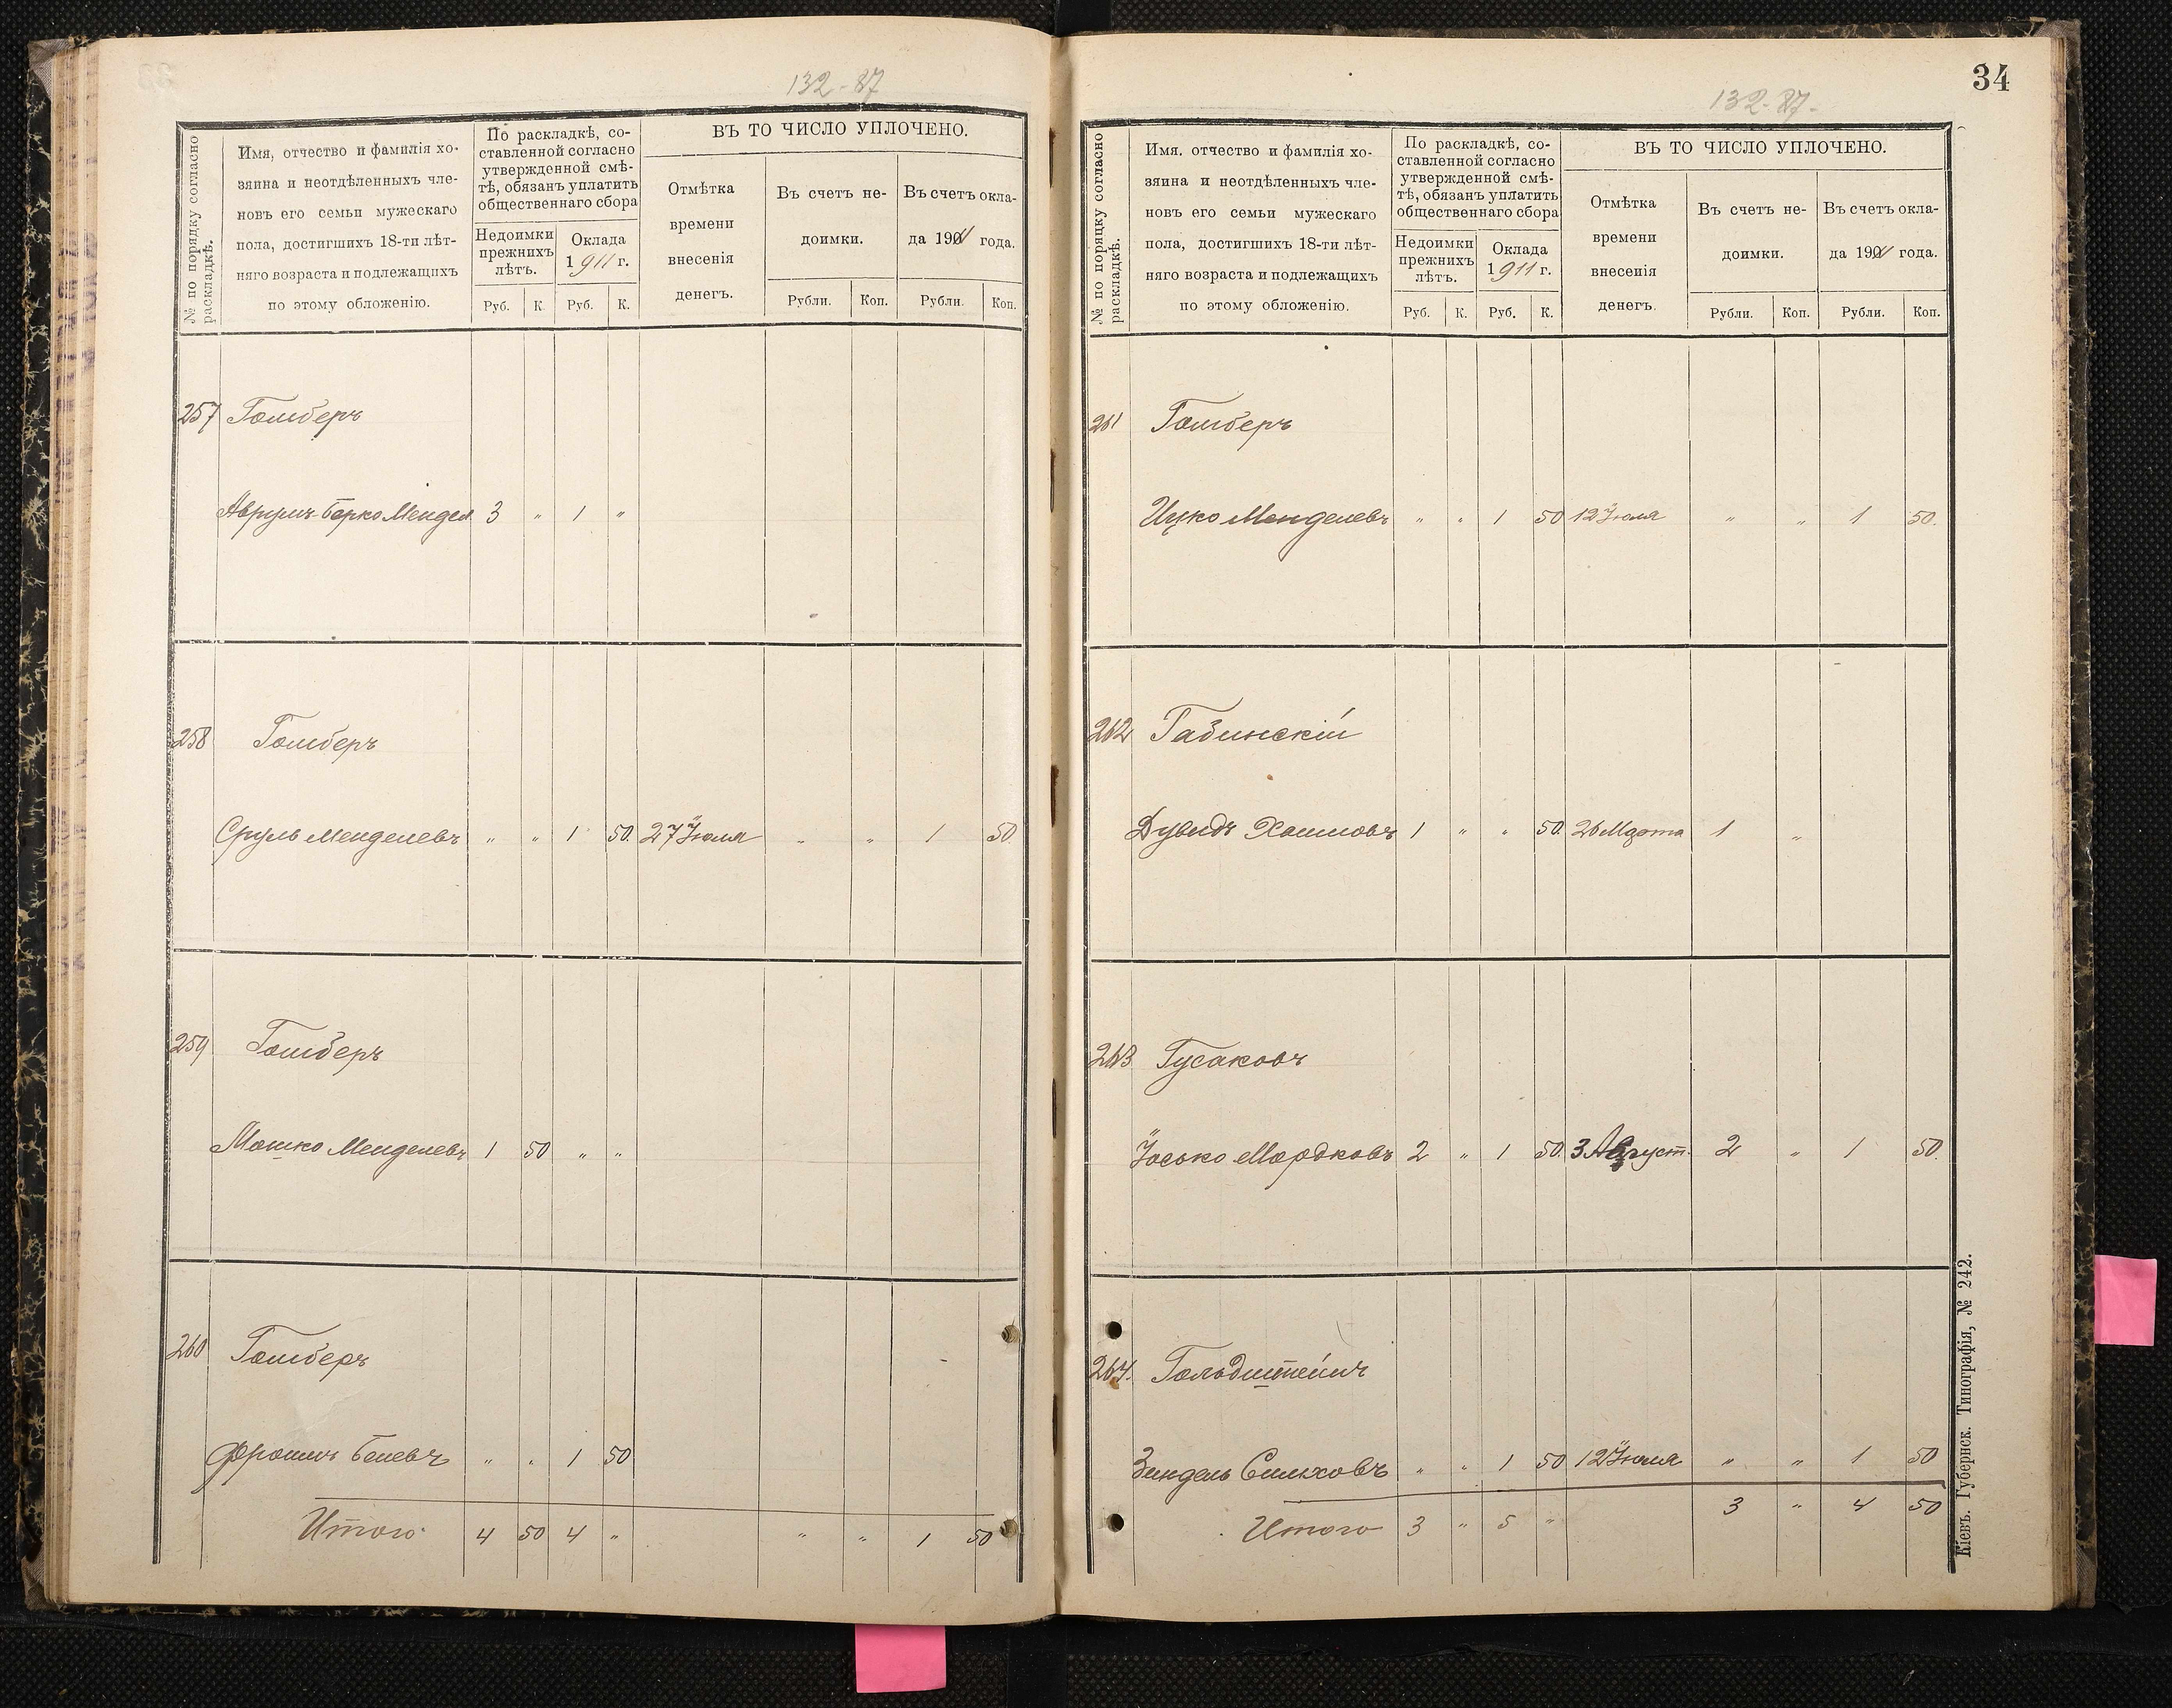 132-87
№ по порядку согласно раскладкѣ.
Имя, отчество и фамилія хо-
зяина и неотдѣленныхъ чле-
новъ его семьи мужескаго
пола, достигшихъ 18-ти лѣт-
няго возраста и подлежащихъ
по этому обложенію.
По раскладкѣ, со-
ставленной согласно
утвержденной смѣ-
тѣ, обязанъ уплатить
общественнаго сбора
Недоимки
прежнихъ
лѣтъ.
Оклада
1911 г.
Руб. К. Руб. К.
ВЪ ТО ЧИСЛО УПЛОЧЕНО.
Отмѣтка
времени
внесенія
денегъ.
Въ счетъ не-
доимки.
Въ счетъ окла-
да 1911 года.
Рубли. Коп. Рубли. Коп.
257 Гомберъ
Аврумъ-Берко Мендел 3 „ 1 „
258 Гомберъ
Сруль Менделевъ „ „ 1 50. 27 Іюля „ „ 1 50.
259 Гомберъ
Мошко Менделевъ 1 50 „ „
260 Гомберъ
Фроимъ „ „ 1 50
Итого 4 50 4 „ „ „ 1 50
34
132-87.
№ по поряцку согласно раскладкѣ.
Имя. отчество и фамилія хо-
зяина и неотдѣленныхъ чле-
новъ его семьи мужескаго
пола, достигшихъ 18-ти лѣт-
няго возраста и подлежащихъ
по этому обложенію.
По раскладкѣ, со-
ставленной согласно
утвержденной смѣ-
тѣ, обязанъ уплатить
общественнаго сбора
Недоимки
прежнихъ
лѣтъ.
Оклада
1911 г.
Руб. К. Руб. К.
ВЪ ТО ЧИСЛО УПЛОЧЕНО.
Отмѣтка
времени
внесенія
денегъ.
Въ счетъ не-
доимки.
Въ счетъ окла-
да 1911 года.
Рубли. Коп. Рубли. Коп.
261 Гомберъ
Ицко Менделевъ „ „ 1 50 12 Іюля „ „ 1 50.
262 Габинскій
Дувидъ Хаимовъ 1 „ „ 50. 26 Марта 1 „
263 Гусаковъ
Іосько Мордковъ 2 „ 1 50. 3 Август. 2 „ 1 50.
264. Гольдштейнъ
Зиндель „ „ 1 50 12 Іюля „ „ 1 50
Итого 3 „ 5 „ 3 „ 4 50
Кіевъ. Губернск. Типографія, № 242.